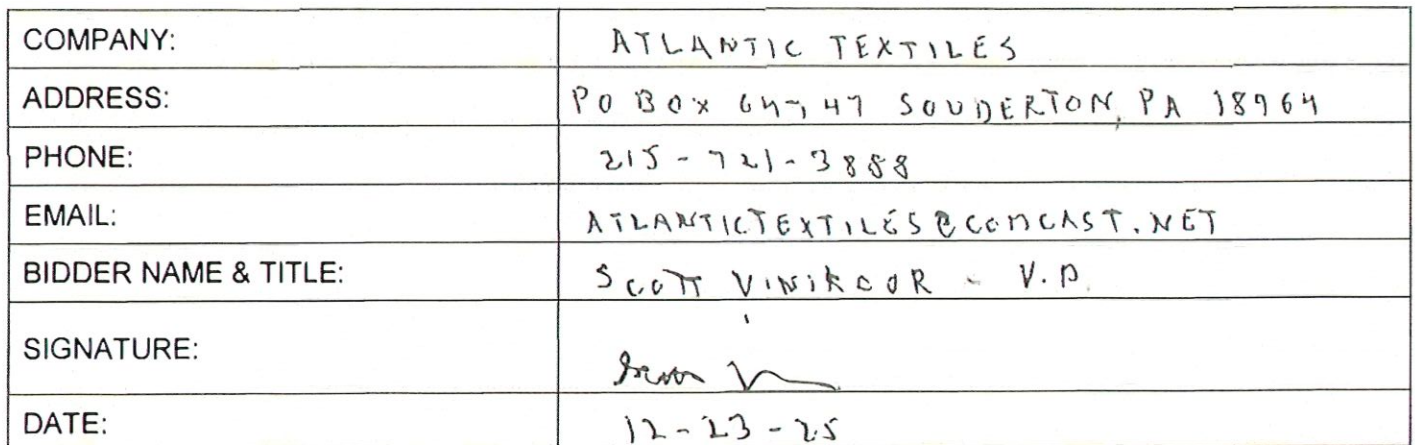 COMPANY: ATLANTIC TEXTILES
ADDRESS: PO BOX 64747 SOUDERTON, PA 18964
PHONE: 215-721-3888
EMAIL: ATLANTICTEXTILES@COMCAST.NET
BIDDER NAME & TITLE: SCOTT VINIKOOR - V.P.
SIGNATURE:
DATE: 12-23-25